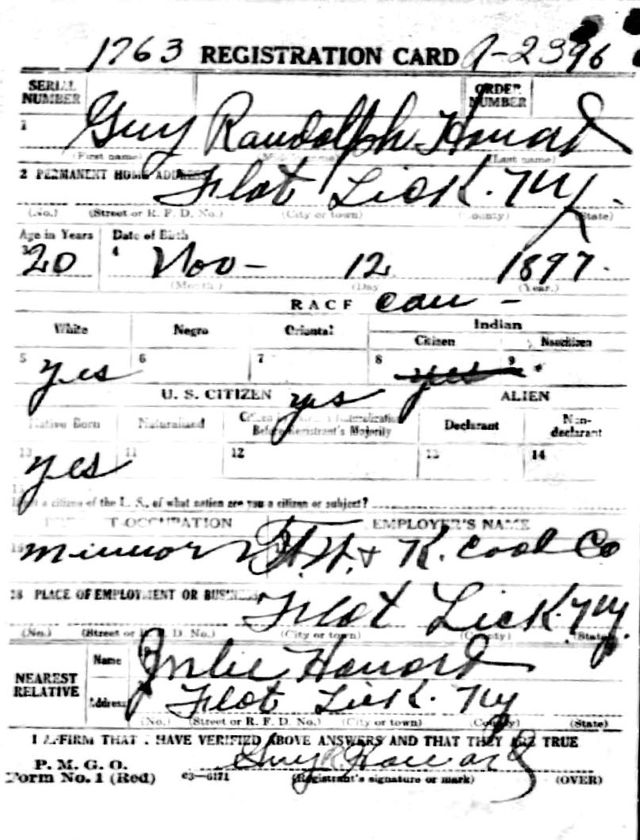 1763 REGISTRATION CARD A-2396
SERIAL NUMBER ORDER NUMBER
1 Guy Randolph Howard
(First name) (Last name)
2 PERMANENT HOME ADDRESS Flat Lick. Ky.
(No.) (Street or R. F. D. No.) (City or town) (County) (State)
Age in Years Date of Birth
3 20 4 Nov- 12 1897.
(Month) (Day) (Year.)
RACE Cau -
White Negro Oriental Indian
Citizen Noncitizen
5 6 7 8 9
yes yes
U. S. CITIZEN yes ALIEN
Native Born Naturalized Before Registrant's Majority Declarant Non-declarant
10 11 12 13 14
yes
15
If not a citizen of the U. S., of what nation are you a citizen or subject?
PRESENT OCCUPATION EMPLOYER'S NAME
16 & K. Coal Co
18 PLACE OF EMPLOYMENT OR BUSINESS Flat Lick Ky.
(No.) (Street or R. F. D. No.) (City or town) (County) (State)
NEAREST RELATIVE
Name Howard
Address Flat Lick. Ky
(No.) (Street or R. F. D. No.) (City or town) (County) (State)
I AFFIRM THAT I HAVE VERIFIED ABOVE ANSWERS AND THAT THEY ARE TRUE
P. M. G. O.
Form No. 1 (Red) c3-6171 Guy R Howard
(Registrant's signature or mark) (OVER)